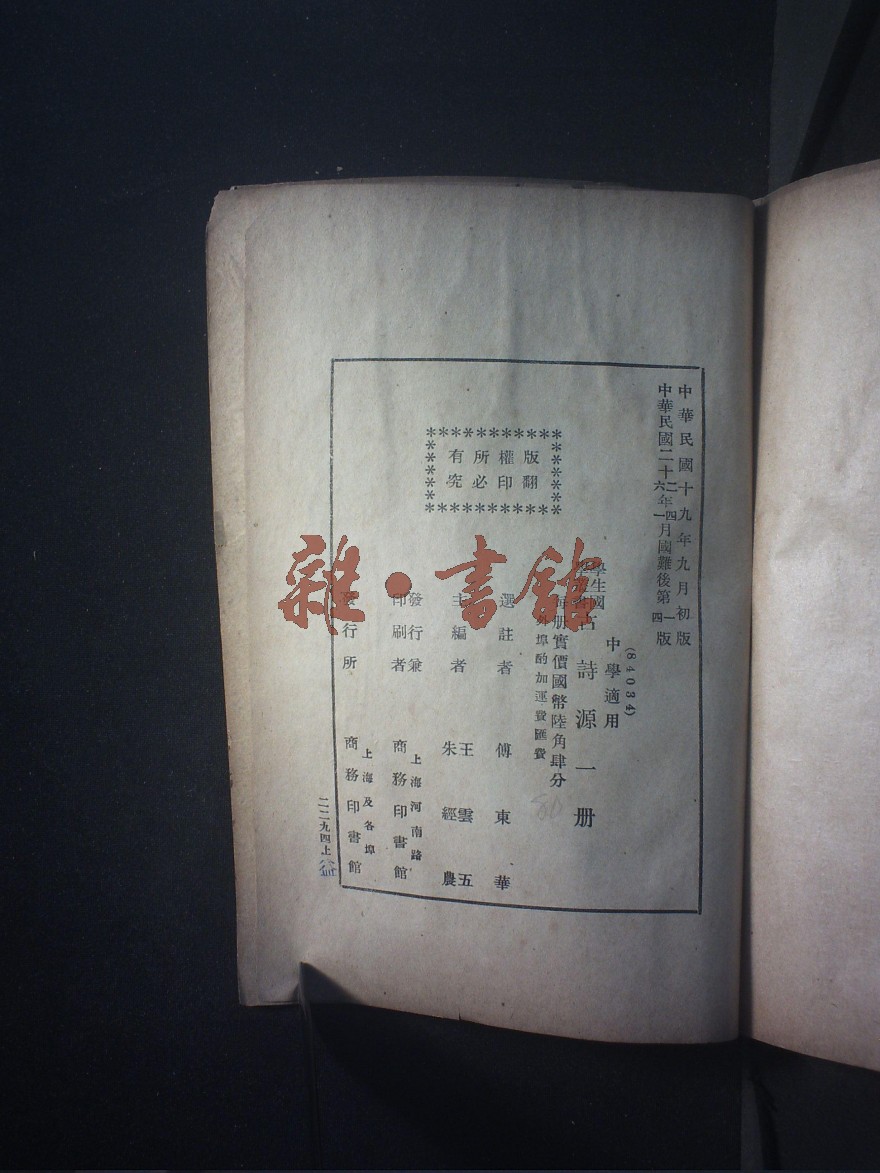 中華民國十九年九月初版
中華民國二十二年四月國難後第一版
中華民國二十六年一月國難後第四版
(84034)
中學適用
學生國
古詩源一册
每册實價國幣陸角肆分
外埠酌加運費匯費
版權所有
翻印必究
選註者 傅東華
主編者 王雲五
朱經農
發行兼
印刷者
上海河南路
商務印書館
發行所
上海及各埠
商務印書館
二二九四上
雜·書館